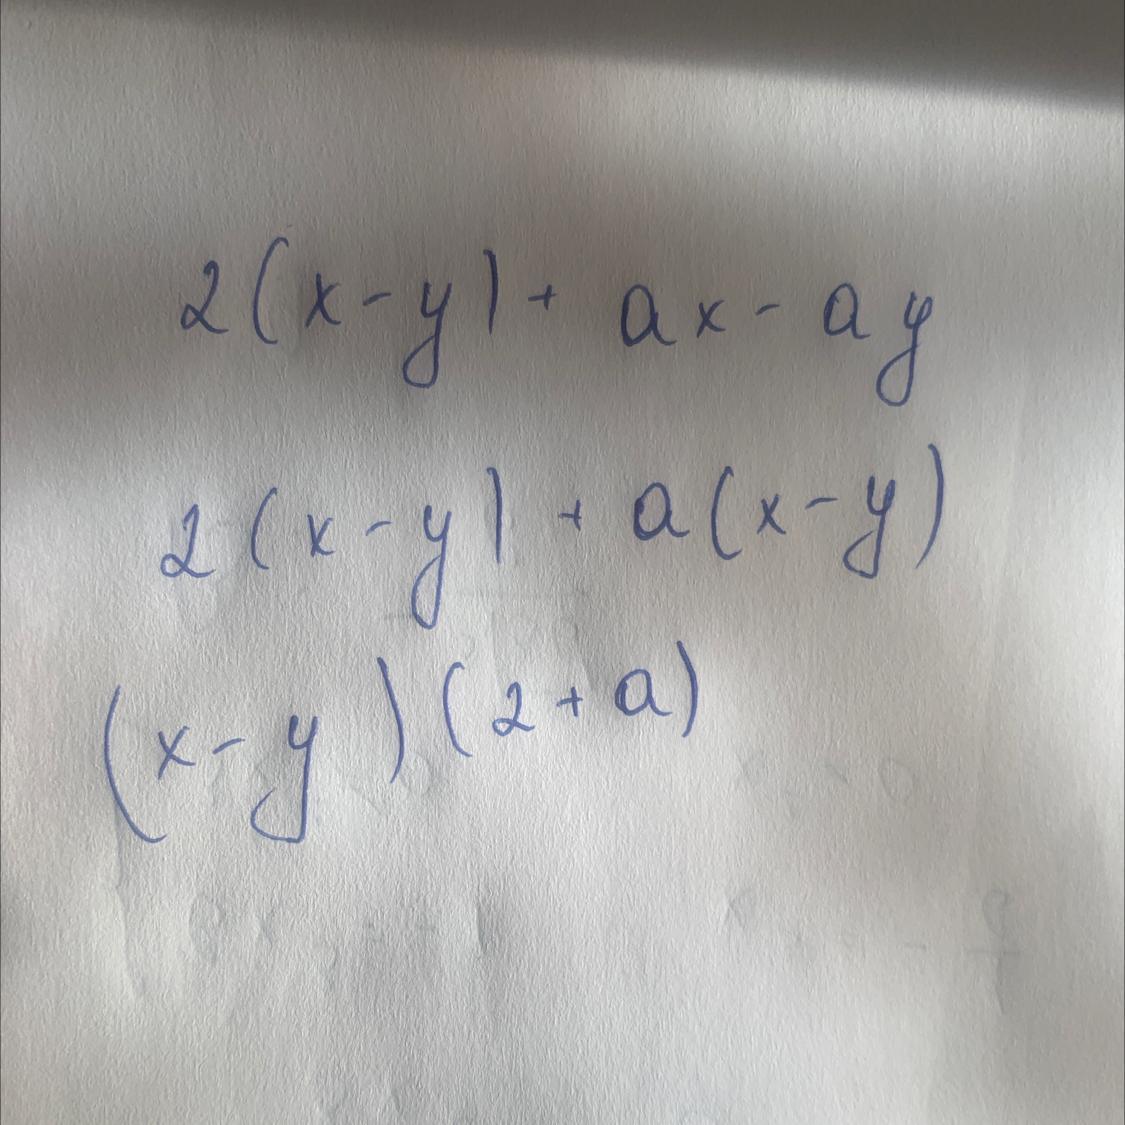 2(x-y)+ ax-ay
2(x-y)+a(x-y)
(x-y)(2+a)